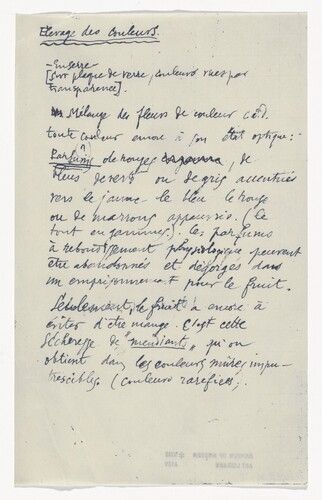 Elevage des couleurs.
— En serre —
[Sur plaque de verre, couleurs vues par
transparence].
Mélange des fleurs de couleur c.à.d.
toute couleur encore à son état optique :
Parfums (?) de rouges, de
bleus de verts ou de gris accentués
vers le jaune le bleu le rouge
ou de marrons appauvris. (le
tout en gammes.). les parfums
à rebondissement physiologique peuvent
être abandonnés et dégorgés dans
un emprisonnement pour le fruit.
Seulement, le fruit a encore à
éviter d'être mangé. C'est cette
sécheresse de "mendiants" qu'on
obtient dans les couleurs mûres impu-
trescibles. (couleurs raréfiées.)